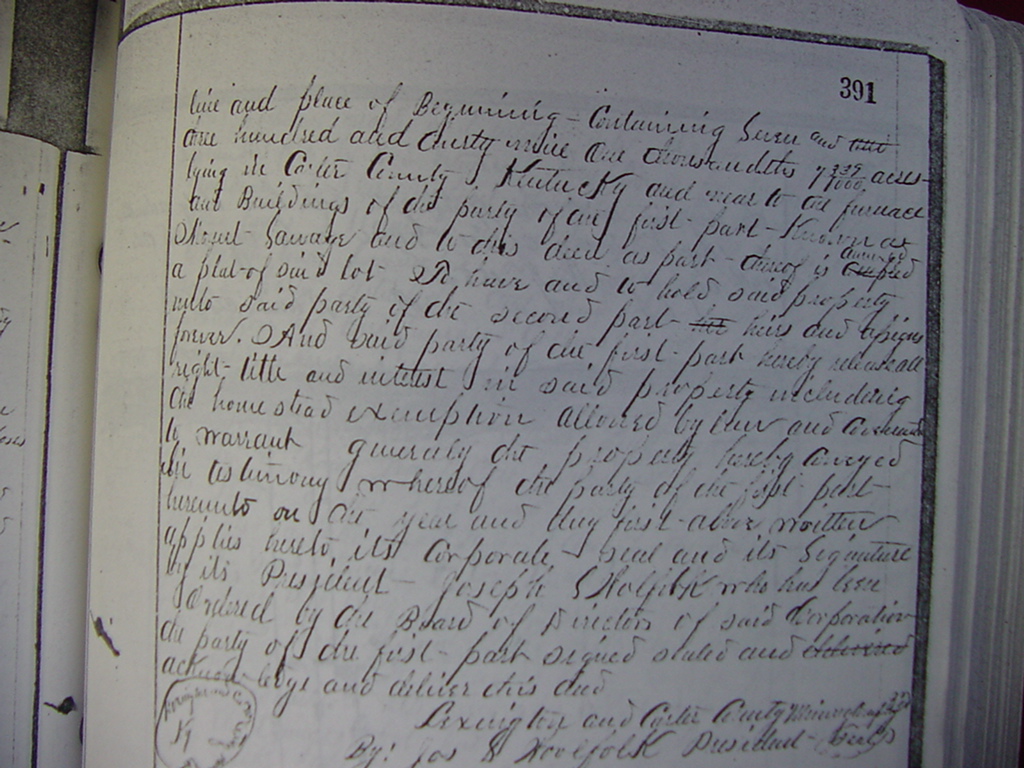 391
line and place of Beginning - Containing Seven and
three hundred and thirty nine One thousandths 7 339/1000 acres -
lying in Carter County Kentucky and near to the furnace
and Buildings of the party of the first part - Known as
Mount Savage and to this deed as part - thereof is annexed
a plat of said lot To have and to hold said property
unto said party of the second part his heirs and assigns
forever. And said party of the first - part hereby release all
right - title and interest in said property including
the homestead exemption allowed by law and Covenants
to warrant generally the property hereby conveyed
in testimony whereof the party of the first part -
hereunto on the year and day first - above written
applies hereto its Corporate seal and its Signature
by its President - Joseph S Wolfolk who has been
Ordered by the Board of Directors of said Corporation
the party of the first - part signed sealed and delivered
acknowledge and deliver this deed
Lexington and Carter County Mining
By: Jos S Woolfolk President -